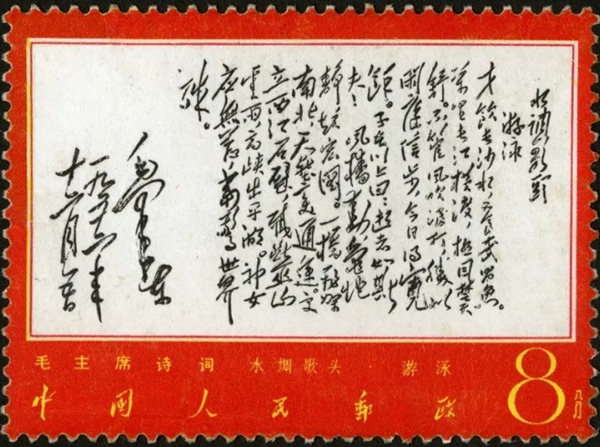 水调歌头
游泳
才饮长沙水,又食武昌鱼。
万里长江横渡,极目楚天
舒。不管风吹浪打,胜似
闲庭信步,今日得宽
馀。子在川上曰:逝者如斯
夫!风樯动,龟蛇
静,起宏图。一桥飞架
南北,天堑变通途。更
立西江石壁,截断巫山
云雨,高峡出平湖。神女
应无恙,当惊世界
殊。
毛泽东
一九五六年
十二月五日
毛主席诗词 水调歌头·游泳
中国人民邮政
8
八分